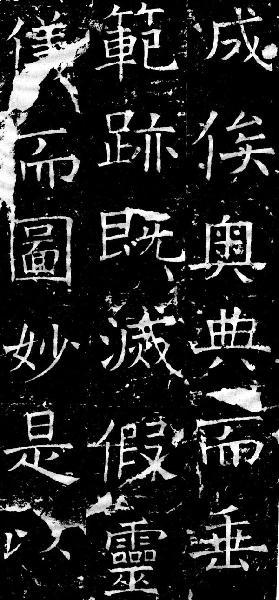 成俟奥典而垂
範跡既滅假靈
儀而圖妙是以